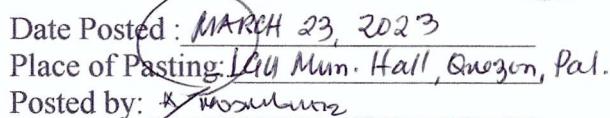 Date Posted : MARCH 23, 2023
Place of Pasting: LGU Mun. Hall, Quezon, Pal.
Posted by: